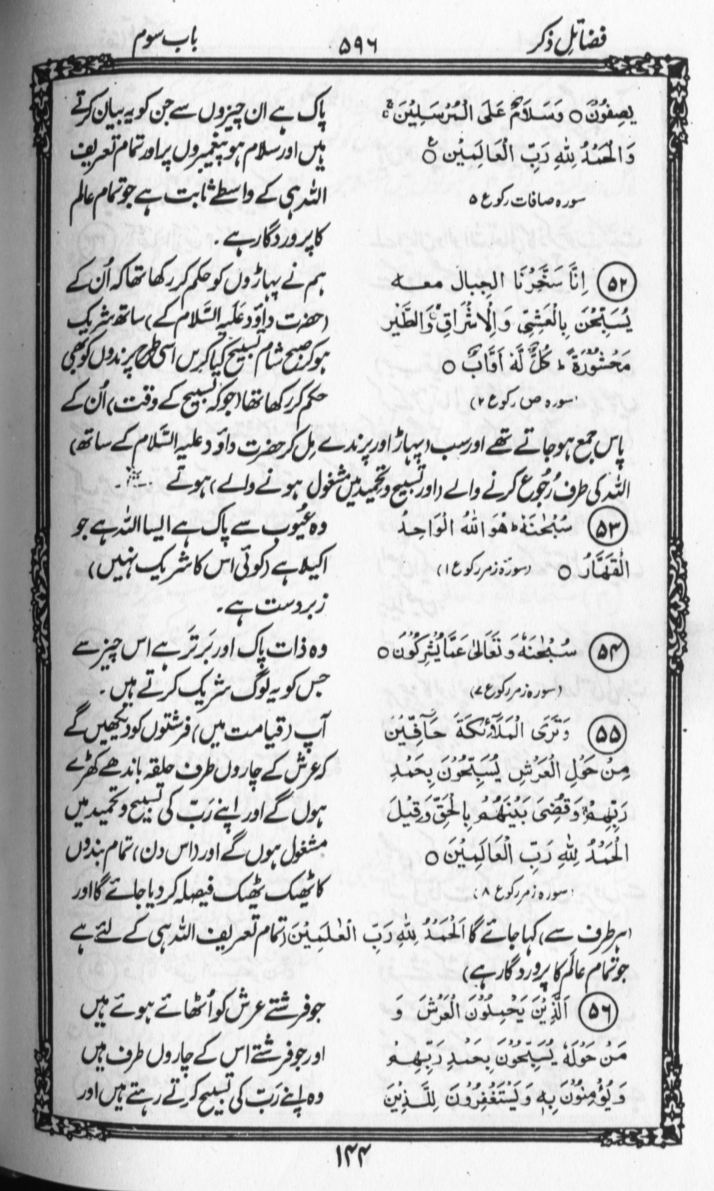 فضائل ذکر ۵۹۶ باب سوم
یَصِفُوْنَ ○ وَسَلَامٌ عَلَی الْمُرْسَلِیْنَ ○
وَالْحَمْدُ لِلّٰہِ رَبِّ الْعَالَمِیْنَ ○
سورہ صافات رکوع ۵
پاک ہے ان چیزوں سے جن کو یہ بیان کرتے
ہیں اور سلام ہو پیغمبروں پر اور تمام تعریف
اللہ ہی کے واسطے ثابت ہے جو تمام عالم
کا پروردگار ہے ۔
(۵۲) اِنَّا سَخَّرْنَا الْجِبَالَ مَعَہ
یُسَبِّحْنَ بِالْعَشِیِّ وَالْاِشْرَاقِ وَالطَّیْرَ
مَحْشُوْرَۃً ط کُلٌّ لَّہٗ اَوَّابٌ ○
(سورہ ص رکوع ۲)
ہم نے پہاڑوں کو حکم کر رکھا تھا کہ اُن کے
(حضرت داؤد عَلَیہِ السَّلام کے) ساتھ شریک
ہو کر صبح شام تسبیح کیا کریں اسی طرح پرندوں کو بھی
حکم کر رکھا تھا (جو کہ تسبیح کے وقت) اُن کے
پاس جمع ہو جاتے تھے اور سب (پہاڑ اور پرندے مل کر حضرت داؤد علیہ السَّلام کے ساتھ)
اللہ کی طرف رُجوع کرنے والے (اور تسبیح و تحمید میں مشغول ہونے والے) ہوتے ۔
(۵۳) سُبْحٰنَہٗ ط ھُوَ اللّٰہُ الْوَاحِدُ
الْقَھَّارُ ○ (سورۃ زمر رکوع ۱)
وہ عُیُوب سے پاک ہے ایسا اللہ ہے جو
اکیلا ہے (کوئی اس کا شریک نہیں)
زبردست ہے ۔
(۵۴) سُبْحٰنَہٗ وَتَعَالٰی عَمَّا یُشْرِکُوْنَ ○
(سورہ زمر رکوع ۷)
وہ ذات پاک اور بَرتَر ہے اس چیز سے
جس کو یہ لوگ شریک کرتے ہیں ۔
(۵۵) وَتَرَی الْمَلَآئِکَۃَ حَآفِّیْنَ
مِنْ حَوْلِ الْعَرْشِ یُسَبِّحُوْنَ بِحَمْدِ
رَبِّھِمْ وَقُضِیَ بَیْنَھُمْ بِالْحَقِّ وَقِیْلَ
الْحَمْدُ لِلّٰہِ رَبِّ الْعَالَمِیْنَ ○
(سورہ زمر رکوع ۸)
آپ (قیامت میں) فرشتوں کو دیکھیں گے
کہ عرش کے چاروں طرف حلقہ باندھے کھڑے
ہوں گے اور اپنے ربّ کی تسبیح و تحمید میں
مشغول ہوں گے اور (اس دن) تمام بندوں
کا ٹھیک ٹھیک فیصلہ کر دیا جائے گا اور
(ہر طرف سے) کہا جائے گا اَلْحَمْدُ لِلّٰہِ رَبِّ الْعٰلَمِیْنَ (تمام تعریف اللہ ہی کے لئے ہے
جو تمام عالَم کا پروردگار ہے)
(۵۶) اَلَّذِیْنَ یَحْمِلُوْنَ الْعَرْشَ وَ
مَنْ حَوْلَہٗ یُسَبِّحُوْنَ بِحَمْدِ رَبِّھِمْ
وَیُؤْمِنُوْنَ بِہٖ وَیَسْتَغْفِرُوْنَ لِلَّذِیْنَ
جو فرشتے عرش کو اُٹھائے ہوئے ہیں
اور جو فرشتے اس کے چاروں طرف ہیں
وہ اپنے رَبّ کی تسبیح کرتے رہتے ہیں اور
۱۴۴